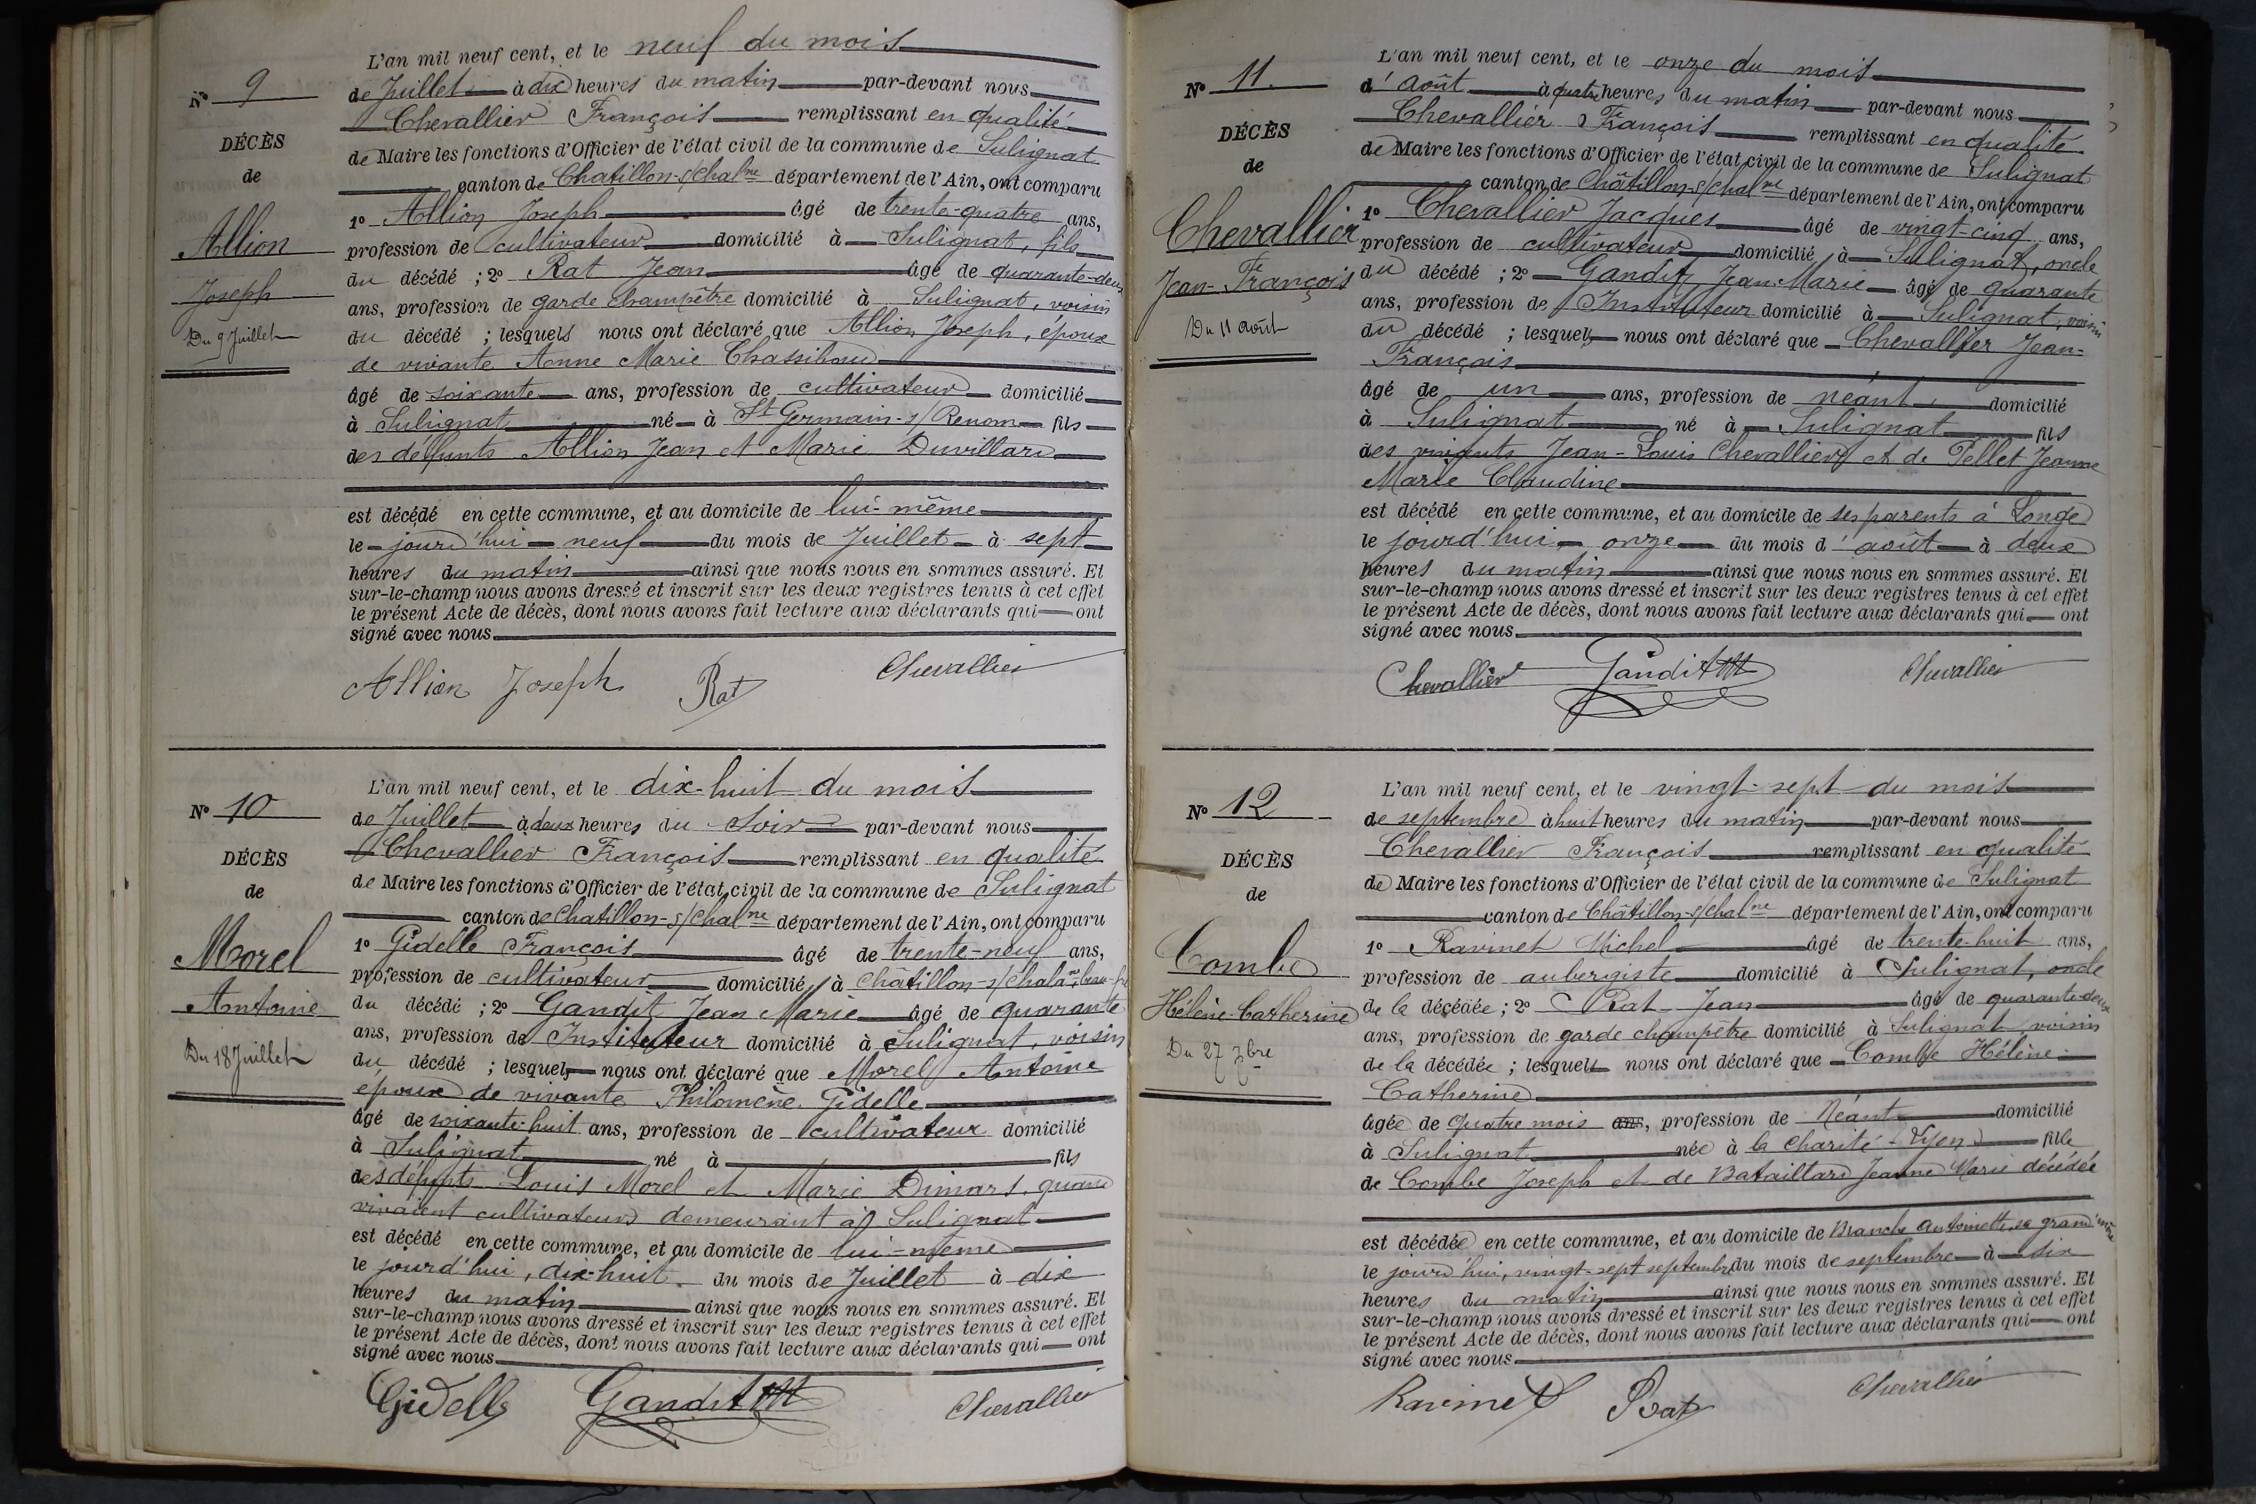 N° 9
DÉCÈS
de
Allion
Joseph
Du 9 Juillet
L'an mil neuf cent, et le neuf du mois
de Juillet à dix heures du matin par-devant nous
Chevallier François remplissant en qualité
de Maire les fonctions d'Officier de l'état civil de la commune de Sulignat
canton de Chatillon-s/Chalne département de l'Ain, ont comparu
1° Allion Joseph âgé de trente-quatre ans,
profession de cultivateur domicilié à Sulignat, fils
du décédé ; 2° Rat Jean âgé de quarante-deux
ans, profession de garde champêtre domicilié à Sulignat, voisin
du décédé ; lesquels nous ont déclaré que Allion Joseph, époux
de vivante Anne Marie Chassiboud
âgé de soixante ans, profession de cultivateur domicilié
à Sulignat né à St Germain-s/Renom fils
des défunts Allion Jean et Marie Duvillard
est décédé en cette commune, et au domicile de lui-même
le jourd'hui neuf du mois de Juillet à sept
heures du matin ainsi que nous nous en sommes assuré. Et
sur-le-champ nous avons dressé et inscrit sur les deux registres tenus à cet effet
le présent Acte de décès, dont nous avons fait lecture aux déclarants qui ont
signé avec nous
Allion Joseph Rat Chevallier
N° 10
DÉCÈS
de
Morel
Antoine
Du 18 Juillet
L'an mil neuf cent, et le dix-huit du mois
de Juillet à deux heures du soir par-devant nous
Chevallier François remplissant en qualité
de Maire les fonctions d'Officier de l'état civil de la commune de Sulignat
canton de Chatillon-s/Chalne département de l'Ain, ont comparu
1° Gidelle François âgé de trente-neuf ans,
profession de cultivateur domicilié à Châtillon-s/Chalane, beau-fr
du décédé ; 2° Gandit Jean Marie âgé de quarante
ans, profession de Instituteur domicilié à Sulignat, voisin
du décédé ; lesquels nous ont déclaré que Morel Antoine
époux de vivante Philomène Gidelle
âgé de soixante-huit ans, profession de cultivateur domicilié
à Sulignat né à fils
des défunts Louis Morel et Marie Dimars, quand
vivaient cultivateurs demeurant à Sulignat
est décédé en cette commune, et au domicile de lui-même
le jourd'hui, dix-huit du mois de Juillet à dix
heures du matin ainsi que nous nous en sommes assuré. Et
sur-le-champ nous avons dressé et inscrit sur les deux registres tenus à cet effet
le présent Acte de décès, dont nous avons fait lecture aux déclarants qui ont
signé avec nous
Gidelle Gandit JM Chevallier
N° 11
DÉCÈS
de
Chevallier
Jean-François
Du 11 août
L'an mil neuf cent, et le onze du mois
d'Août à quatre heures du matin par-devant nous
Chevallier François remplissant en qualité
de Maire les fonctions d'Officier de l'état civil de la commune de Sulignat
canton de Châtillon-s/Chalne département de l'Ain, ont comparu
1° Chevallier Jacques âgé de vingt-cinq ans,
profession de cultivateur domicilié à Sulignat, oncle
du décédé ; 2° Gandit Jean-Marie âgé de quarante
ans, profession de Instituteur domicilié à Sulignat, voisin
du décédé ; lesquels nous ont déclaré que Chevallier Jean-
François
âgé de un ans, profession de néant domicilié
à Sulignat né à Sulignat fils
des vivants Jean-Louis Chevallier et de Pellet Jeanne
Marie Claudine
est décédé en cette commune, et au domicile de ses parents à Longe
le jourd'hui onze du mois d'août à deux
heures du matin ainsi que nous nous en sommes assuré. Et
sur-le-champ nous avons dressé et inscrit sur les deux registres tenus à cet effet
le présent Acte de décès, dont nous avons fait lecture aux déclarants qui ont
signé avec nous
Chevallier Gandit JM Chevallier
N° 12
DÉCÈS
de
Combe
Hélène-Catherine
Du 27 7bre
L'an mil neuf cent, et le vingt-sept du mois
de septembre à huit heures du matin par-devant nous
Chevallier François remplissant en qualité
de Maire les fonctions d'Officier de l'état civil de la commune de Sulignat
canton de Châtillon-s/Chalne département de l'Ain, ont comparu
1° Ravinet Michel âgé de trente-huit ans,
profession de aubergiste domicilié à Sulignat, oncle
de la décédée ; 2° Rat Jean âgé de quarante-deux
ans, profession de garde champêtre domicilié à Sulignat voisin
de la décédée ; lesquels nous ont déclaré que Combe Hélène-
Catherine
âgée de quatre mois ans, profession de Néant domicilié
à Sulignat née à la Charité-Lyon fille
de Combe Joseph et de Bataillard Jeanne Marie décédée
est décédée en cette commune, et au domicile de Branche Antoinette, sa grand'mère
le jourd'hui, vingt-sept septembre du mois de septembre à six
heures du matin ainsi que nous nous en sommes assuré. Et
sur-le-champ nous avons dressé et inscrit sur les deux registres tenus à cet effet
le présent Acte de décès, dont nous avons fait lecture aux déclarants qui ont
signé avec nous
Ravinet Rat Chevallier